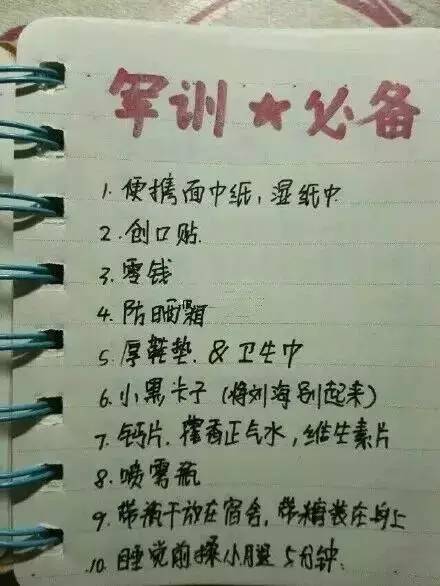 军训★必备
1. 便携面巾纸,湿纸巾
2. 创口贴
3. 零钱
4. 防晒霜
5. 厚鞋垫.&卫生巾
6. 小黑卡子(将刘海别起来)
7. 钙片.藿香正气水,维生素片
8. 喷雾瓶
9. 带饼干放在宿舍,带糖装在身上
10. 睡觉前揉小腿5分钟.